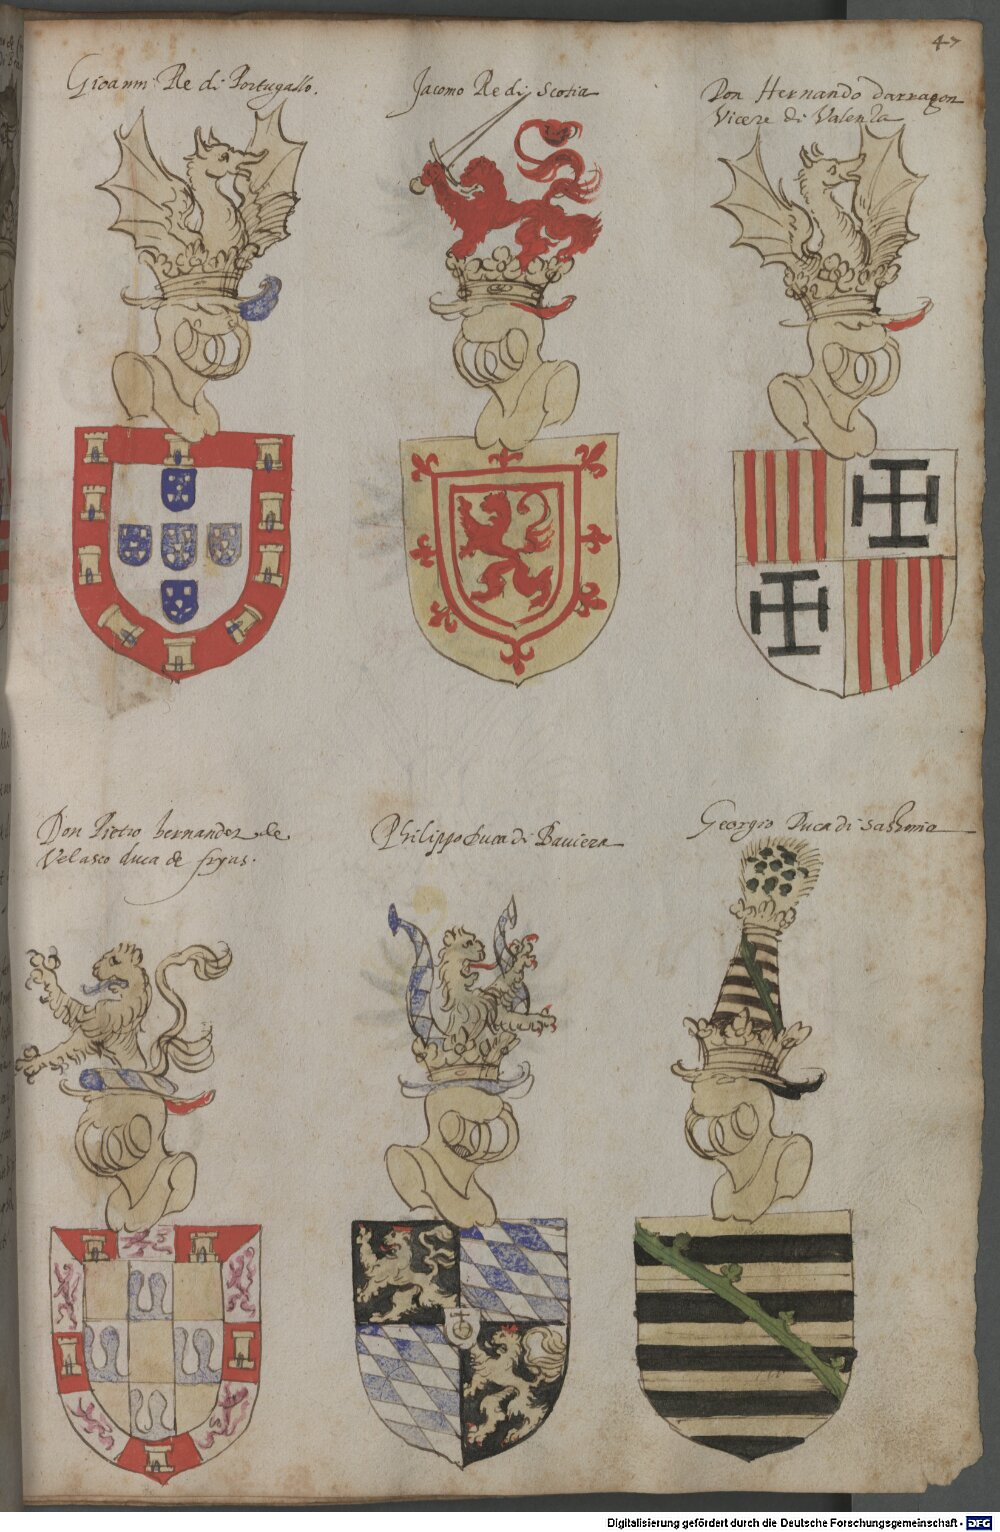 47
Gioanni Re di Portugallo.
Jacomo Re di Scotia
Don Hernando Darragon
Vicere di Valenza
Don Pietro hernandez de
Velasco duca de fryas.
Philippo Duca di Baviera
Georgio Duca di Sashonia
Digitalisierung gefördert durch die Deutsche Forschungsgemeinschaft - DFG